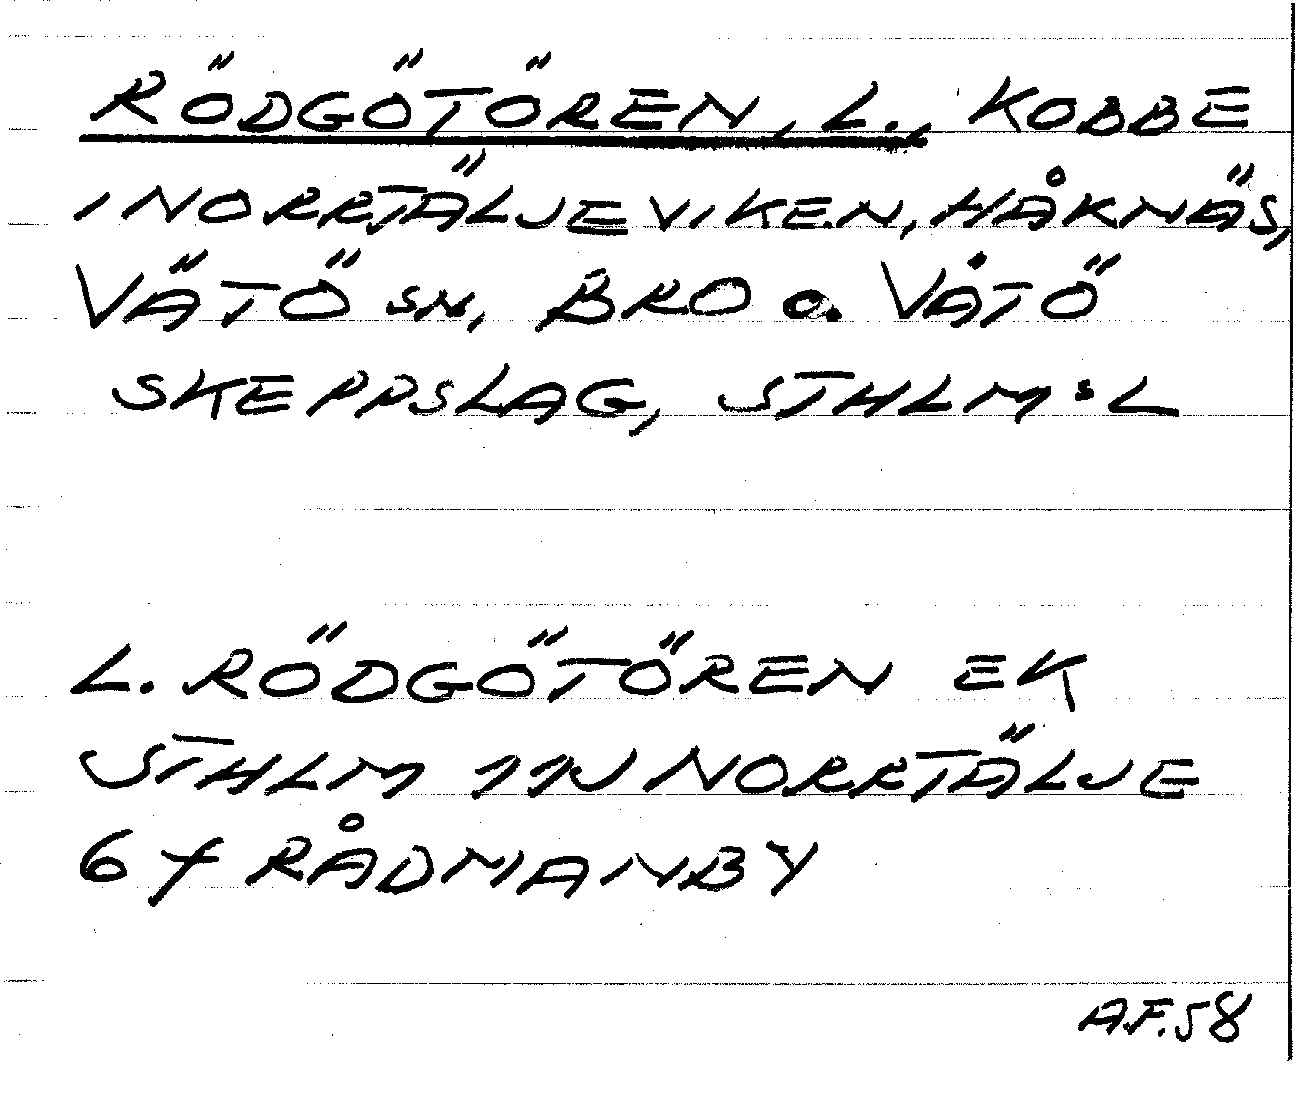 RÖDGÖTÖREN, L., KOBBE
I NORRTÄLJEVIKEN, HÅKNÄS,
VÄTÖ SN, BRO O. VÄTÖ
SKEPPSLAG, STHLM:L
L. RÖDGÖTÖREN EK
STHLM 11J NORRTÄLJE
6f RÅDMANBY
A.F.58